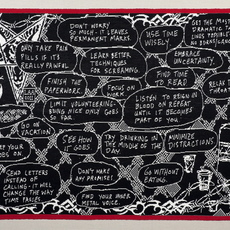 DON'T WORRY
SO MUCH - IT LEAVES
PERMANENT MARKS.
USE TIME
WISELY
GET THE MOST
DRAMATIC
LINES POSSIBLE -
NO
ONLY TAKE PAIN
PILLS IF IT'S
REALLY PAINFUL
LEARN BETTER
TECHNIQUES
FOR SCREAMING.
EMBRACE
UNCERTAINTY.
FINISH THE
PAPERWORK.
FOCUS ON
WORK
FIND TIME
TO READ
LIMIT VOLUNTEERING -
BEING NICE ONLY GOES
SO FAR.
LISTEN TO REIGN IN
BLOOD ON REPEAT
UNTIL IT BECOMES
PART OF YOU
GO ON
VACATION
GOES ON.
SEE HOW
IT GOES
TRY DRINKING IN
THE MIDDLE OF THE
DAY
MINIMIZE
DISTRACTIONS
SEND LETTERS
INSTEAD OF
CALLING - IT WILL
CHANGE THE WAY
TIME PASSES
DON'T MAKE
ANY PROMISES
GO WITHOUT
EATING.
FIND YOUR INNER
METAL VOICE.